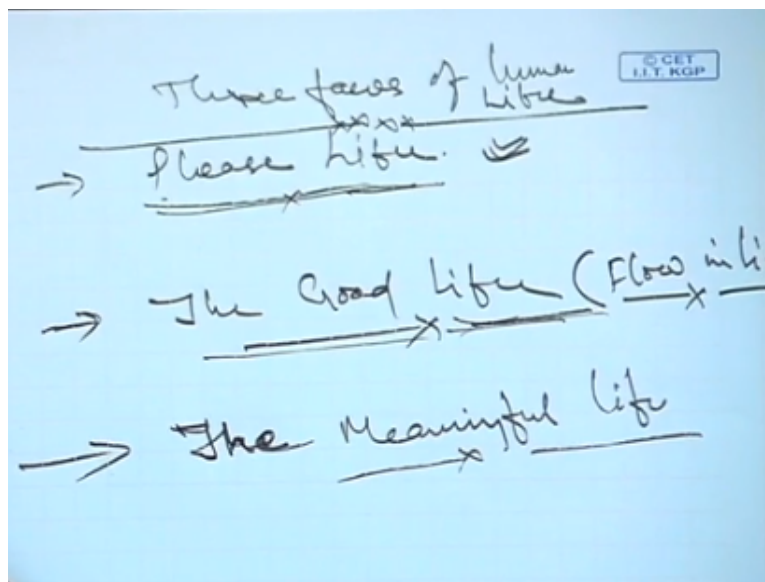 Three faces of human
Life
© CET
I.I.T. KGP
Please Life.
The Good Life (Flow in li
The Meaningful life